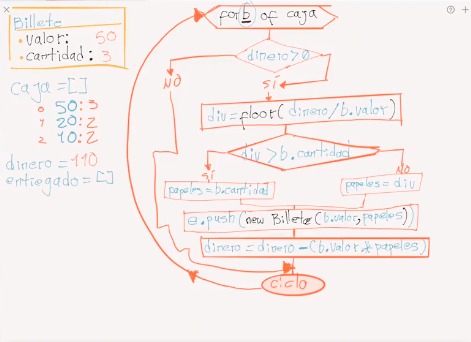 Billete
• valor: 50
• cantidad: 3
caja = []
0 50:3
1 20:2
2 10:2
dinero = 110
entregado = []
for b of caja
dinero > 0
NO
SÍ
div = floor( dinero / b.valor)
div > b.cantidad
SÍ
No
papeles = b.cantidad
papeles = div
e.push(new Billete (b.valor, papeles))
dinero = dinero - (b.valor * papeles)
ciclo